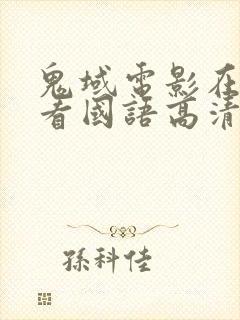 鬼域電影在
看國語高清
孫科佳